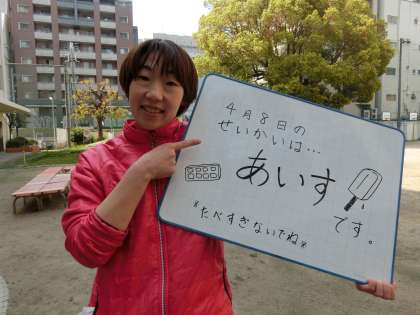 4月8日の
せいかいは…
あいす
です。
*たべすぎないでね*